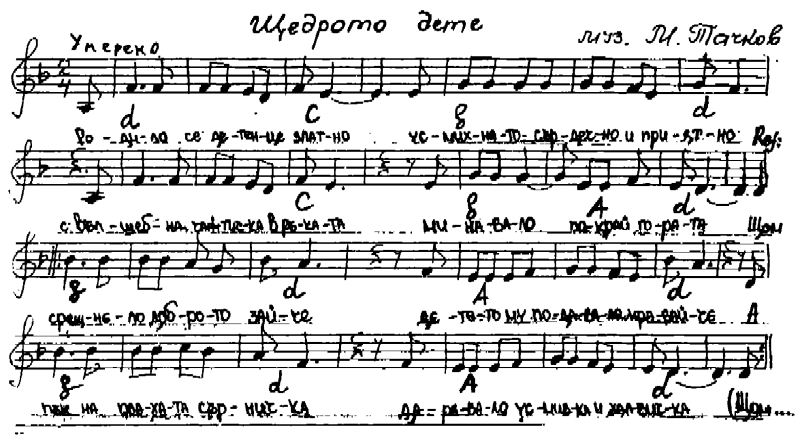 Щедрото дете
Умерено муз. М. Тачков
2 4
d C g d
Ро-ди-ло се де-тен-це злат-но ус-мих-на-то-сър-деч-но и при-ят-но Ref:
C g A d
с въл-шеб-на, чан-тич-ка в ръ-ка-та ми-на-ва-ло по-край го-ра-та Щом
g d A d
срещ-не-ло доб-ро-то зай-че де-те-то му по-да-ва-ло А
g d A d
пък на пла-ха-та сър-нич-ка да-ря-ва-ло ус-мив-ка и (Щом....